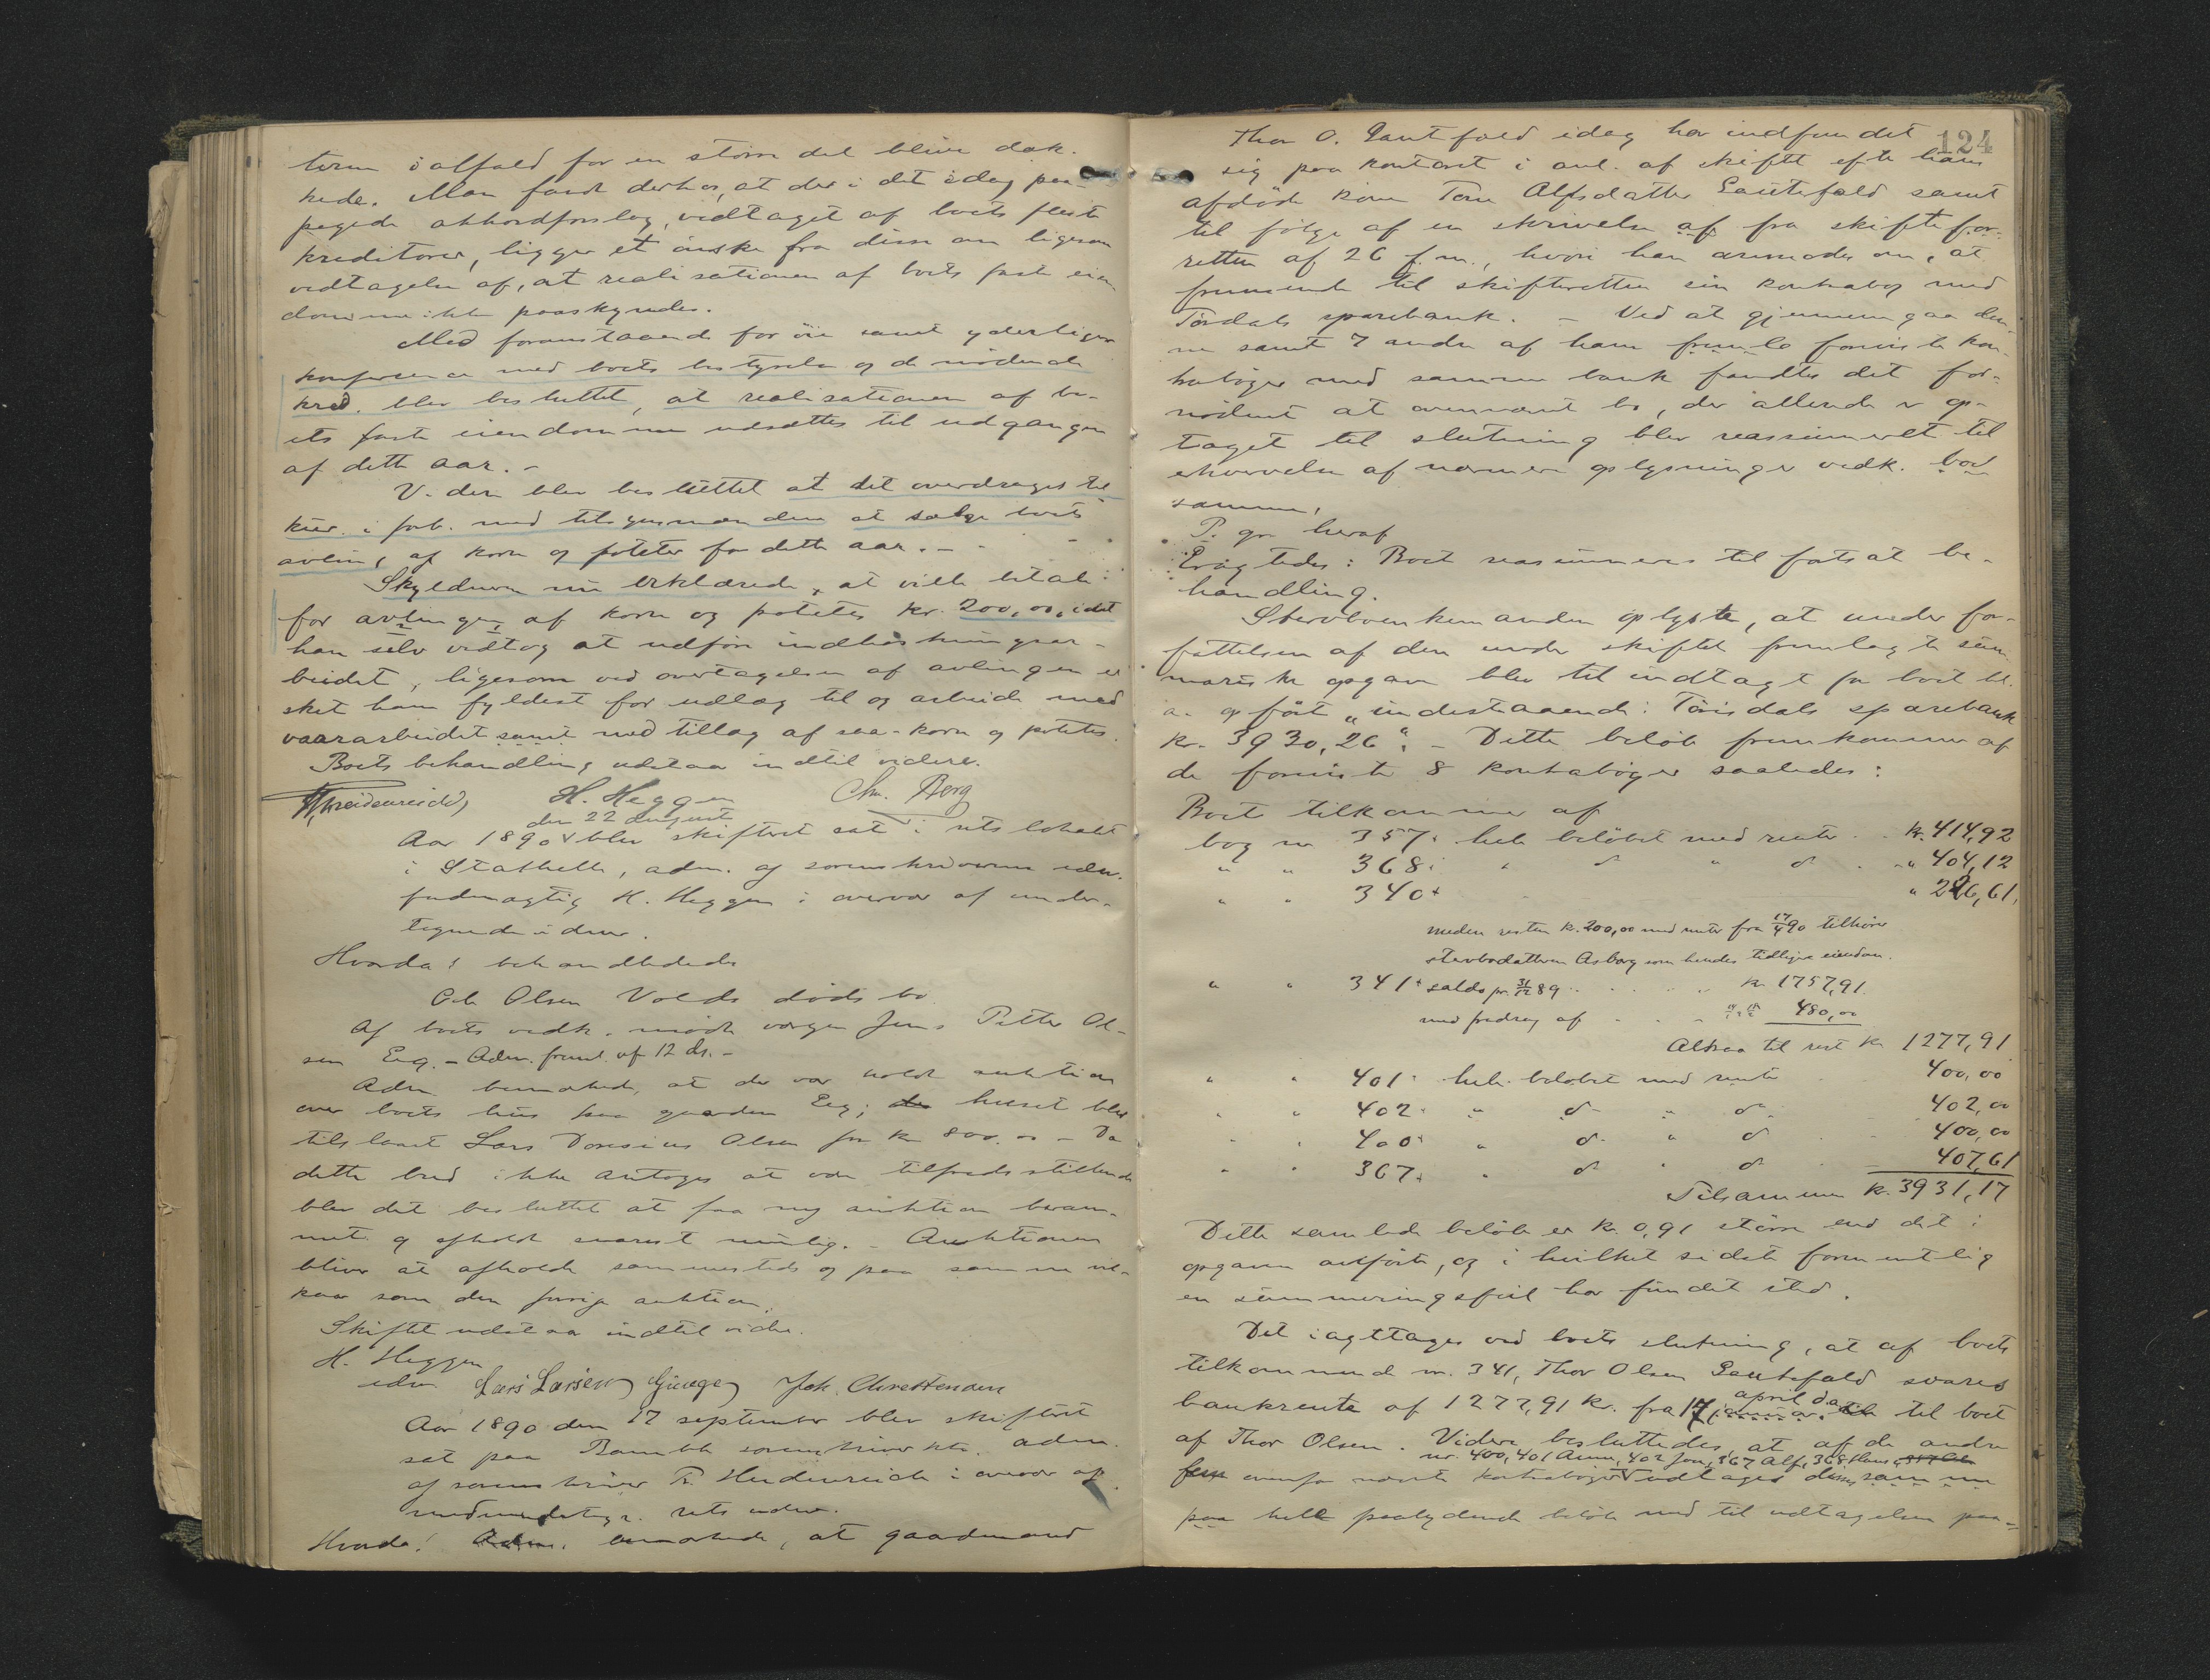 terne ialfald for en større del blive dæk-
kede. Man fandt derhos, at der i det idag paa-
pegede akkordforslag, vedtaget af boets fleste
kreditorer, ligger et ønske fra disse om ligesom
vedtagelse af, at realisationen af boets faste eien
domme ikke paaskyndes.
Med foranstaaende for øie samt yderligere
konferance med boets bestyrelse og de mødende
kred. blev besluttet, at realisationen af bo-
ets faste eiendomme udsættes til udgangen
af dette aar. -
V. dere blev besluttet at det overdrages til
kur. i forb. med tilsynsmændene at sælge boets
avling af korn og poteter for dette aar. -
Skyldneren nu erklærede, at ville betale
for avlingen af korn og poteter kr. 200,00, idet
han selv vedtog at udføre indhøstningsar-
beidet, ligesom ved overtagelsen af avlingen er
sket ham fyldest for udlæg til og arbeide med
vaararbeidet samt med tillæg af saa-korn og poteter.
Boets behandling udstaar indtil videre.
H. Heggen Chr. Berg
den 22 august
Aar 1890 blev skifteret sat i rets lokalet
i Stathelle, adm. af sorenskriverens edsv.
fuldmægtig H. Heggen i overvær af under-
tegnede vidner.
Hvorda: behandledes
Ole Olsen Volds dødsbo
Af boets vedk. mødte værgen Jens Petter Ol-
sen Eeg. - Adm. freml. af 12 ds. -
Adm bemærkede, at der var holdt auktion
over boets hus paa gaarden Eeg; der huset blev
tilslaaet Lars Donsius Olsen for kr 800.00 - Da
dette bud ikke antages at være tilfredsstillende
blev det besluttet at faa ny auktion beram-
met og afholdt snarest mulig. - Auktionen
bliver at afholde sammesteds og paa samme vil-
kaar som den forrige auktion.
Skiftet udstaar indtil videre.
H. Heggen
edsv Lars Larsen Joh. Christensen
Aar 1890 den 17 september blev skifteret
sat paa Bamble sorenskriverktr. adm.
af sorenskriver F. Heidenreich i overvær af
medundertegn. rets vidner.
Hvorda! Adm. bemærkede, at gaardmand
124
Thor O. Gautefald idag har indfundet
sig paa kontoret i anl. af skiftet efter hans
afdøde kone Tone Alfsdatter Gautefald samt
til følge af en skrivelse af fra skiftefor-
retten af 26 f.m., hvori han anmodes om, at
fremsende til skifteretten sin kontrabog med
Tørdals sparebank. - Ved at gjennemgaa den-
ne samt 7 andre af ham fremla foreviste kon-
trabøger med samme bank fandtes det for-
nødent at ovennævnt bo, der allerede er op-
taget til slutning blev reassumeret til
erhvervelse af nærmere oplysninger vedk. bod
samme,
P. gr. heraf
Eragtedes: Boet reassumeres til fortsat be-
handling.
Stervboenkemanden oplyste, at under for-
fattelsen af den under skiftet fremlagte sum-
mariske opgave blev til indtægt for boet bl.
a. opført "indestaaende i Tørdals sparebank
kr. 3930,26". - Dette beløb fremkommer af
de foreviste 8 kontrabøger saaledes:
Boet tilkommer af
bog nr 357: hele beløbet med renter .. kr. 414,92
" " 368: " do " do . . " 404,12
" " 340+ " 226,61,
medens resten kr. 200,00 med renter fra 17/4 90 tilhører
stervbodatteren Asborg som hendes tidligere eiendom.
" " 341+ saldo pr. 31/12 89 . . . . . kr 1757,91
med fradrag af . . . . 480,00
Altsaa til rest kr 1277,91
" " 401 hele beløbet med renter . 400,00
" " 402 " do " do 402,00
" " 400 " do " do 400,00
" " 367+ " do " do 407,61
Tilsammen kr. 3931,17
Dette samlede beløb er kr. 0,91 større end det i
opgaven anførte, og i hvilket sidste formentlig
en summeringsfeil har fundet sted.
Det iagttages ved boets slutning, at af boets
tilkommende nr. 341, Thor Olsen Gautefald svares
april da
bankrente af 1277,91 kr. fra 17 januar til boet
af Thor Olsen. Videre besluttedes, at af de andre
nr. 400, 401 Anne, 402 Jon, 367 Alf, 368 Hans
fem ovenfor nævnte kontrabøger udtages disse som nu
paa hele paalydende beløb med til udtagelsen paa-